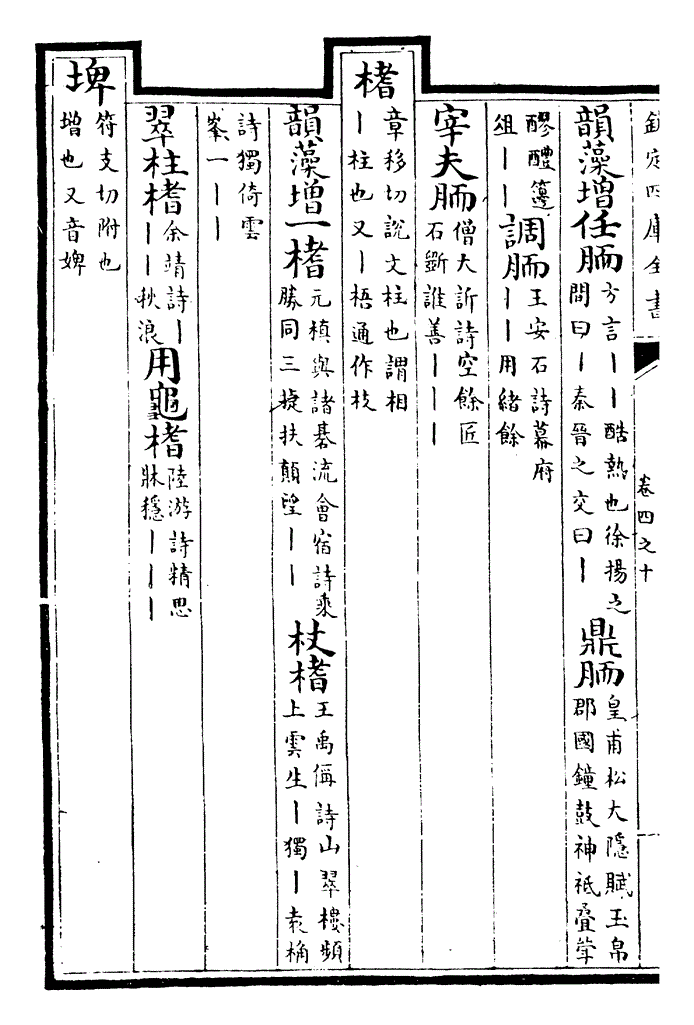 欽定四庫全書 卷四之十
韻藻增任胹
方言丨丨酷熱也徐揚之
間曰丨秦晉之交曰丨
鼎胹
皇甫松大隱賦玉帛
郡國鐘鼓神祇疊犖
醪醴籩
俎丨丨
調胹
王安石詩幕府
丨丨用緒餘
宰夫胹
僧大訢詩空餘匠
石斵誰善丨丨丨
榰
章移切說文柱也謂相
丨柱也又丨梧通作枝
韻藻增一榰
元稹與諸碁流會宿詩乘
勝同三捷扶顛望丨丨
杖榰
王禹偁詩山翠樓頻
上雲生丨獨丨袁桷
詩獨倚雲
峯一丨丨
翠柱榰
余靖詩丨
丨丨秋浪
用龜榰
陸游詩精思
牀穩丨丨丨
埤
符支切附也
增也又音婢